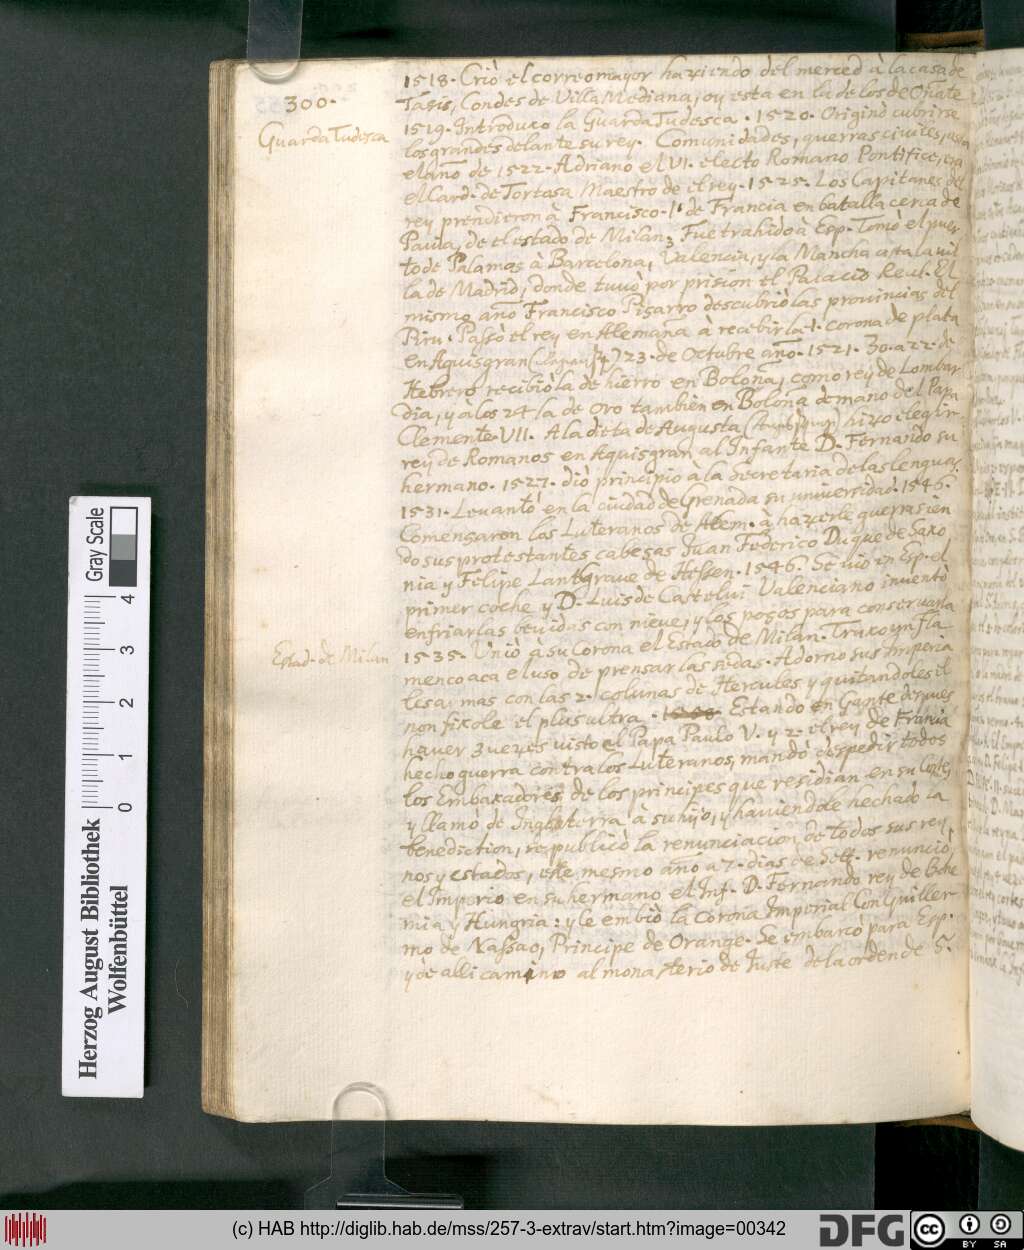 300.
Guarda Tudesca
1518. Criò el correo mayor haziendo del merced à la casa de
Tasis, Condes de Villa Mediana, oy esta en la de los de Oñate
1519. Introduxo la Guarda Tudesca. 1520. Originò cubrirse
los grandes delante su rey. Comunidades, guerras civiles,
el año de 1522. Adriano el VI. electo Romano Pontifice, era
el Card. de Tortosa Maestro de el rey. 1525. Los Capitanes del
rey prendieron à Francisco. 1. de Francia en batalla cerca de
Pavia, de el estado de Milan, Fue trahido à Esp. Tomò el puer
to de Palamos à Barcelona, Valencia, y la Mancha asta la vil
la de Madrid, donde tuvò por prision el Palacio Real. El
mismo año Francisco Pisarro descubriò las provincias del
Piru. Passò el rey en Alemaña à recebir la 1. corona de plata
en Aquisgran 23. de Octubre año. 1521. 30. a 22. de
Hebrero recibiò la de hierro en Boloña, como rey de Lombar
dia, y à los 24 la de oro tambien en Boloña de mano del Papa
Clemente VII. A la dieta de Augusta hizo elegir
rey de Romanos en Aquisgran al Infante D. Fernando su
hermano. 1527. diò principio à la Secretaria de las lenguas.
1531. Levantò en la ciudad de Grenada su universidad. 1546.
Comensaron los Luteranos de Alem. à hazerle guerra sien
do sus protestantes cabesas Juan Federico Duque de Saxo
nia y Felipe Lantgrave de Hessen. 1546. Se vio en Esp. el
primer coche y D. Luis de Castelvi Valenciano inventò
enfriar las bevidas con nieve, y los posos para conservarla
Estad. de Milan
1535. Uniò a su Corona el Estado de Milan. Traxo un fla
menco aca el uso de prensar las sedas. Adorno sus Imperia
les armas con las 2. colunas de Hercules y quitandoles el
non fixole el plus ultra. Estando en Gante despues
haver 3 vezes visto el Papa Paulo V. y 2. el rey de Francia
hecho guerra contra los Luteranos, mandò despedir todos
los Embaxadores de los principes que residian en su Corte,
y llamò de Inglaterra à su hijo, y haviendole hechado la
benediction, se publicò la renunciacion de todos sus rey,
nos y estados, este mesmo año a 7. dias de Set. renunciò
el Imperio en su hermano el Inf. D. Fernando rey de Bohe
mia y Hungria: y le embiò la Corona Imperial con Guiller-
mo de Nassao, Principe de Orange. Se embarcò para Esp.
y de alli camino al monasterio de Juste de la orden de S.
Herzog August Bibliothek
Wolfenbüttel
0 1 2 3 4
Gray Scale
(c) HAB http://diglib.hab.de/mss/257-3-extrav/start.htm?image=00342
DFG
cc BY SA